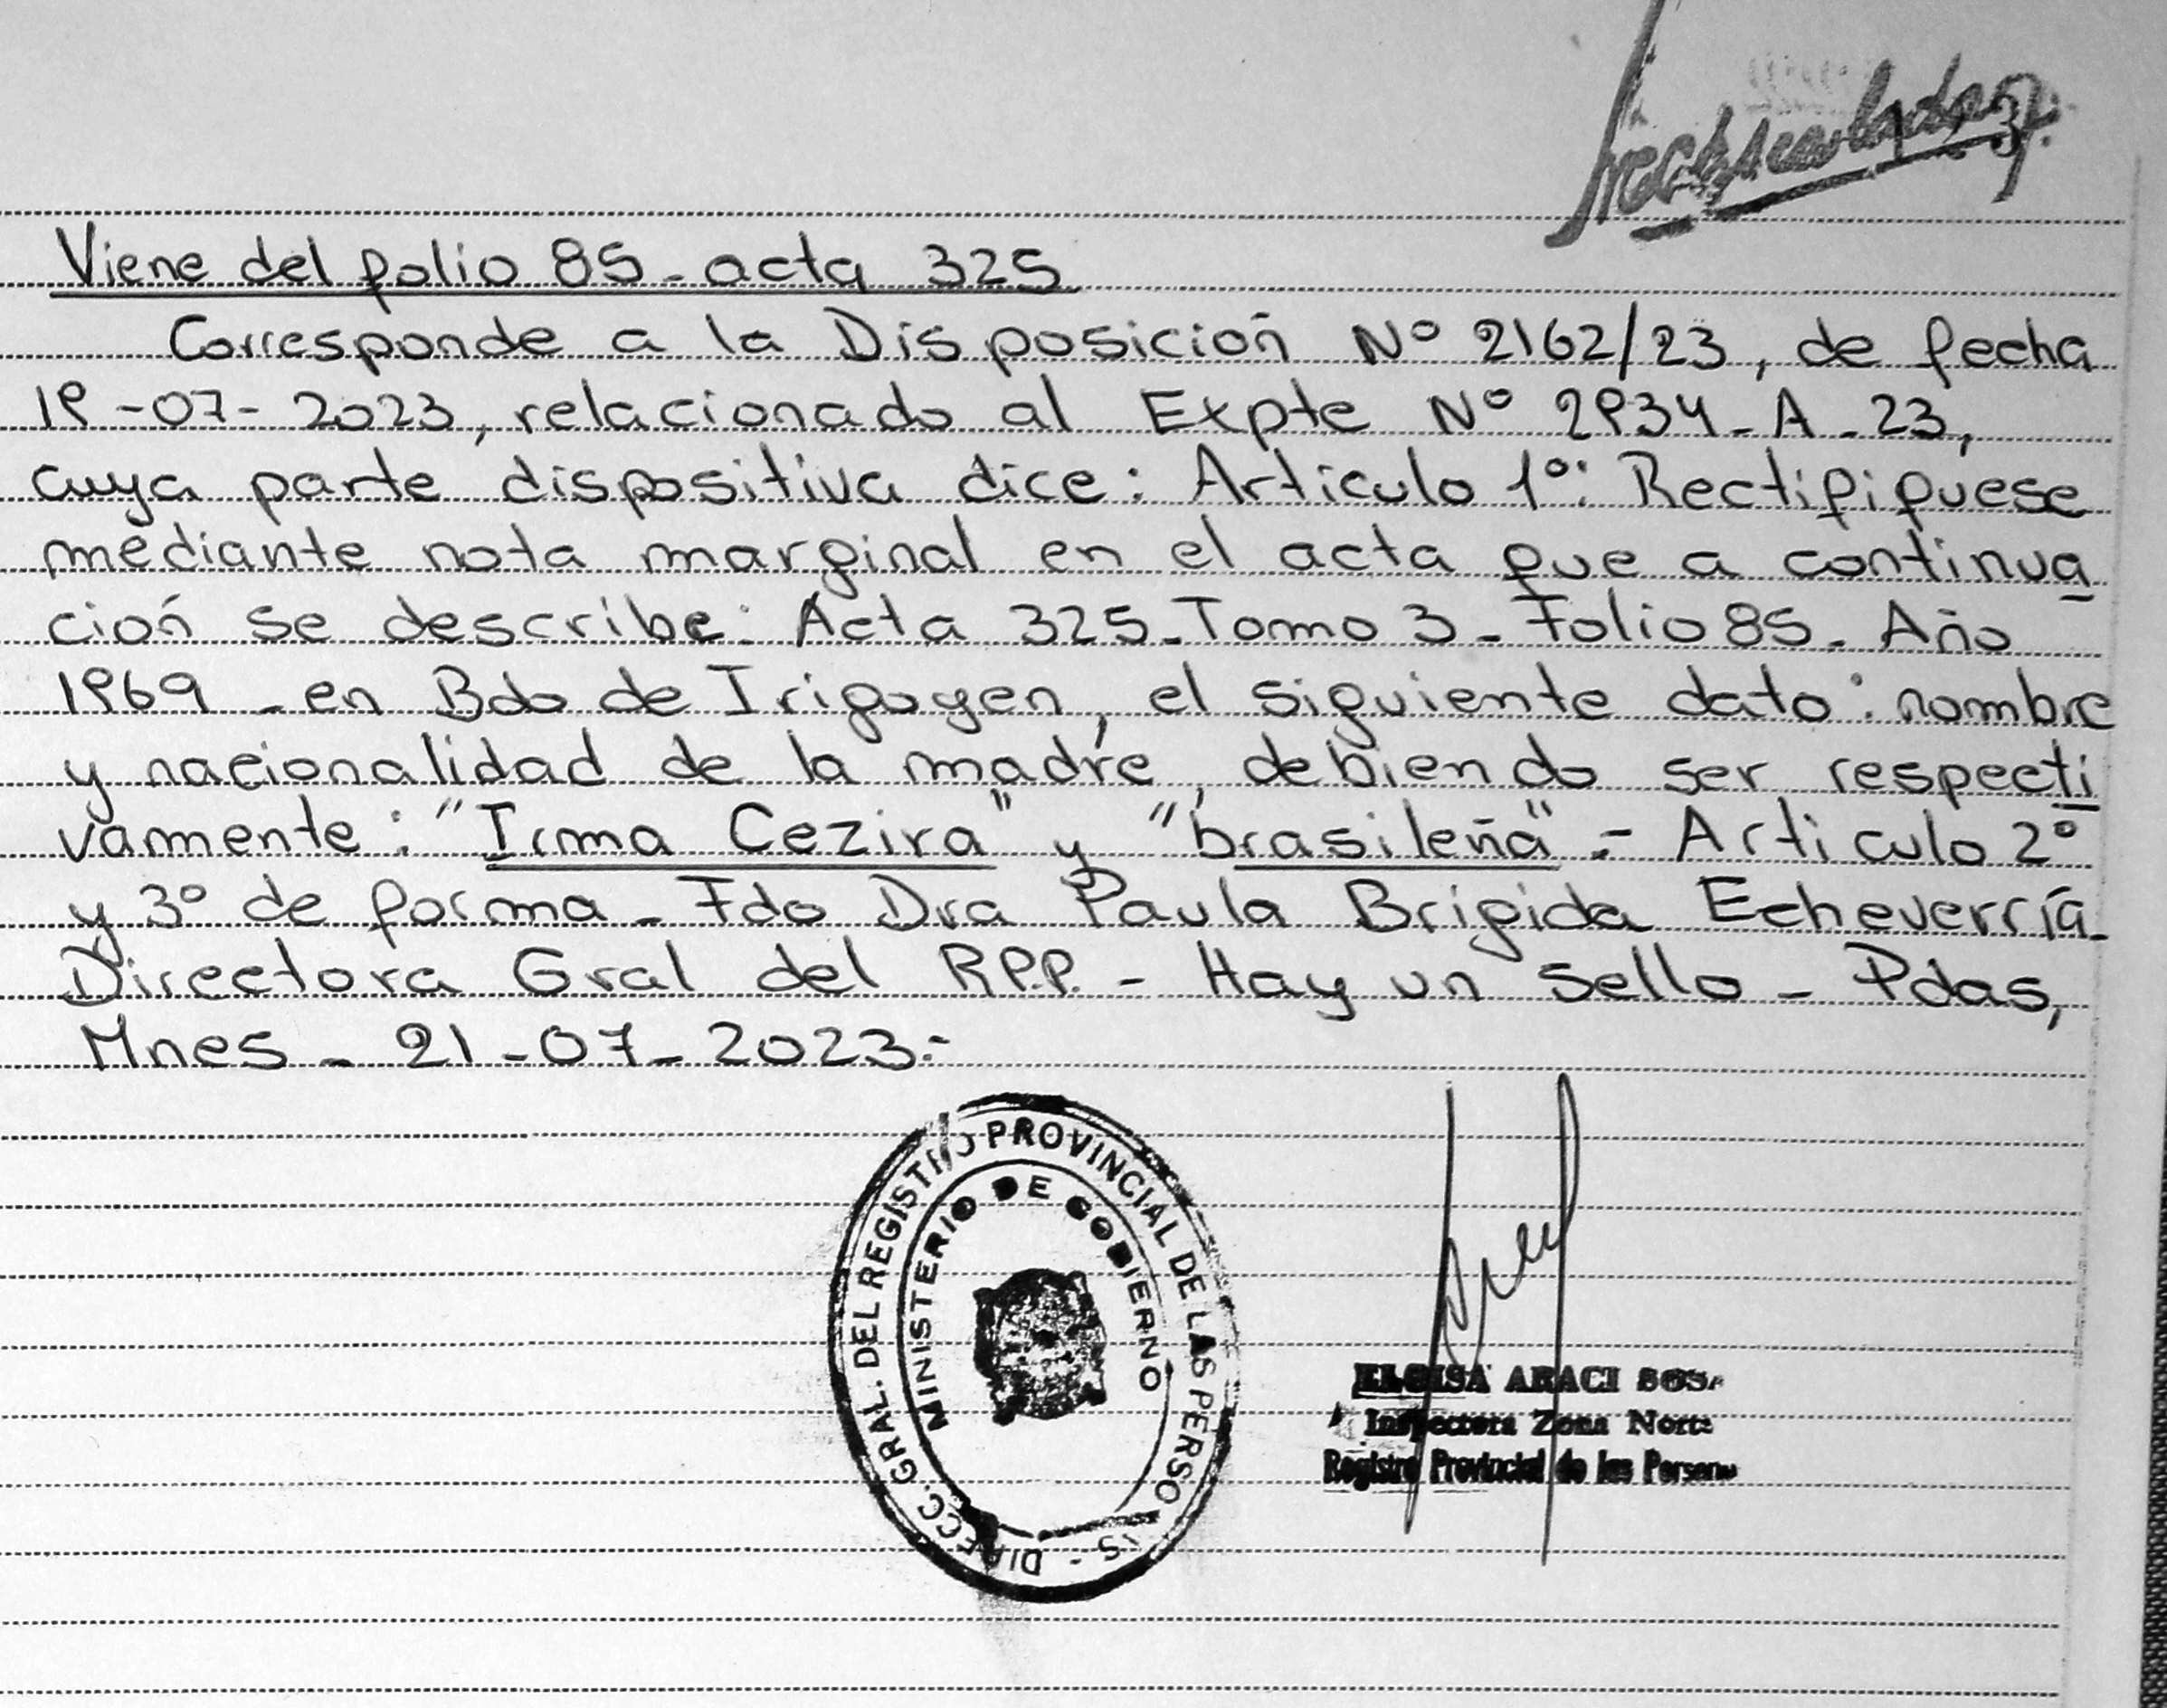 Viene del folio 85 - acta 325
Corresponde a la Disposición Nº 2162/23, de fecha
19-07-2023, relacionado al Expte Nº 2934-A-23,
cuya parte dispositiva dice: Articulo 1º: Rectifiquese
mediante nota marginal en el acta que a continua
ción se describe: Acta 325-Tomo 3-Folio 85-Año
1969 - en Bdo de Irigoyen, el siguiente dato: nombre
y nacionalidad de la madre, debiendo ser respecti
vamente: "Irma Cezira" y "brasileña".- Articulo 2º
y 3º de forma - Fdo Dra Paula Brigida Echeverría-
Directora Gral del R.P.P. - Hay un sello - Pdas,
Mnes - 21-07-2023.-
DIRECC. GRAL. DEL REGISTRO PROVINCIAL DE LAS PERSONAS -
MINISTERIO DE GOBIERNO
ELOISA ARACI SOSA
Inspectora Zona Norte
Registro Provincial de las Persona